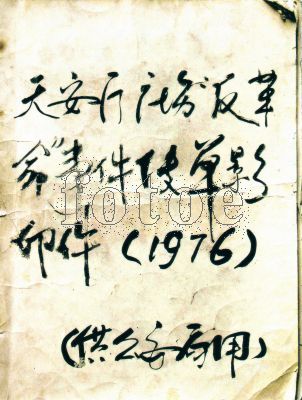 天安门广场“反革
命”事件传单影
印件（1976）
（供公安局用）
fotoe